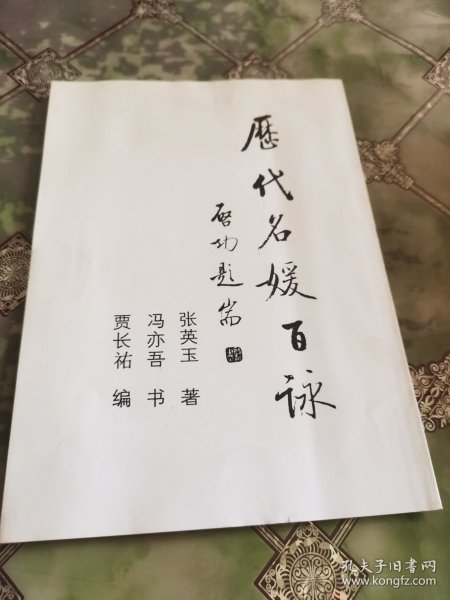 歷代名媛百詠
啓功題耑
张英玉 著
冯亦吾 书
贾长祐 编
孔夫子旧书网
www.kongfz.com